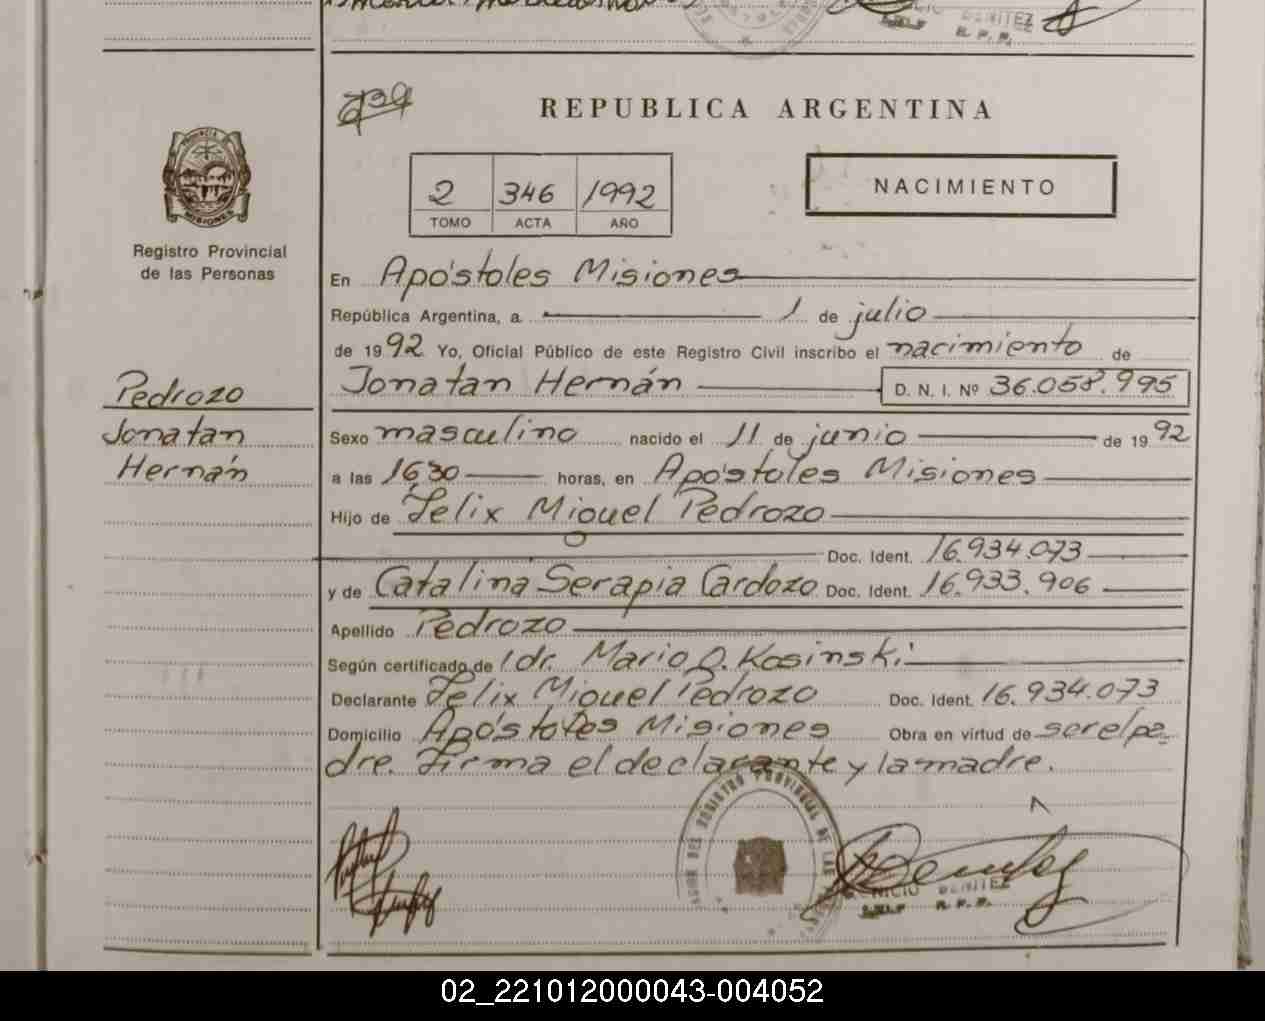 BENITEZ
R. P. P.
REPUBLICA ARGENTINA
2 346 1992
TOMO ACTA AÑO
NACIMIENTO
PROVINCIA
MISIONES
Registro Provincial
de las Personas
En Apóstoles Misiones
República Argentina, a 1 de julio
de 1992 Yo, Oficial Público de este Registro Civil inscribo el nacimiento de
Jonatan Hernán D. N. I. Nº 36.058.995
Pedrozo
Jonatan
Hernán
Sexo masculino nacido el 11 de junio de 1992
a las 1630 horas, en Apóstoles Misiones
Hijo de Felix Miguel Pedrozo
Doc. Ident. 16.934.073
y de Catalina Serapia Cardozo Doc. Ident. 16.933.906
Apellido Pedrozo
Según certificado de ldr. Mario Q. Kosinski
Declarante Felix Miguel Pedrozo Doc. Ident. 16.934.073
Domicilio Apóstoles Misiones Obra en virtud de ser el pa-
dre. Firma el declarante y la madre.
DEL REGISTRO PROVINCIAL DE LAS
BENITEZ
R. P. P.
02_221012000043-004052